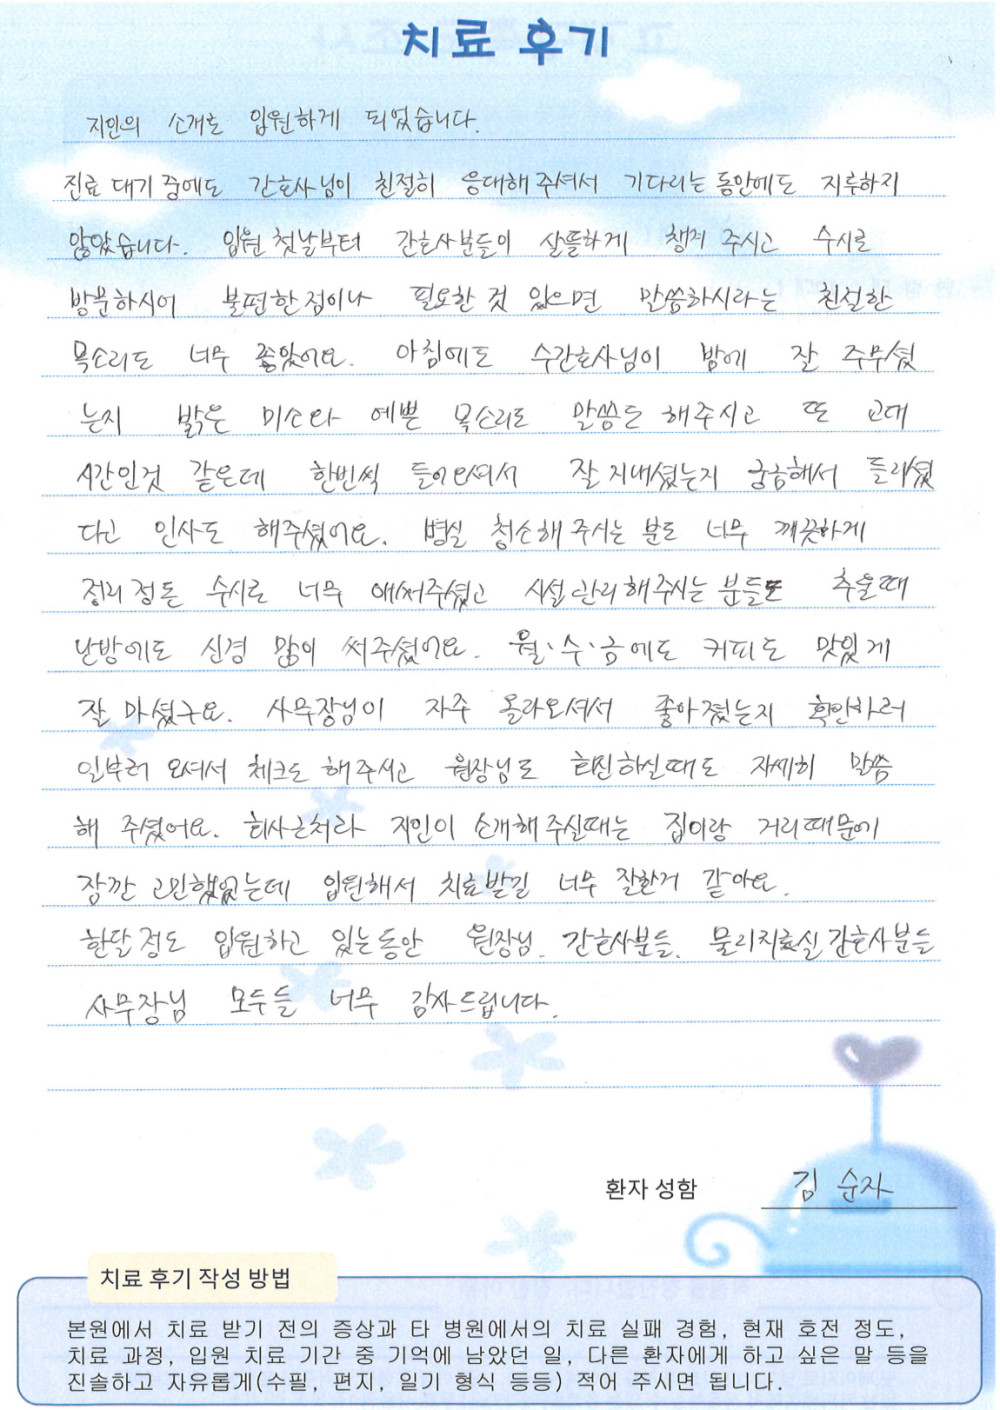 치료 후기
지인의 소개로 입원하게 되었습니다.
진료 대기 중에도 간호사님이 친절히 응대해 주셔서 기다리는 동안에도 지루하지
않았습니다. 입원 첫날부터 간호사분들이 살뜰하게 챙겨 주시고 수시로
방문하시어 불편한 점이나 필요한 것 있으면 말씀하시라는 친절한
목소리도 너무 좋았어요. 아침에도 수간호사님이 밤에 잘 주무셨
는지 밝은 미소와 예쁜 목소리로 말씀도 해주시고 또 교대
시간인것 같은데 한번씩 들어오셔서 잘 지내셨는지 궁금해서 들리셨
다고 인사도 해주셨어요. 병실 청소해 주시는 분도 너무 깨끗하게
정리 정돈 수시로 너무 애써주셨고 시설관리 해주시는 분들도 추울때
난방에도 신경 많이 써주셨어요. 월·수·금에도 커피도 맛있게
잘 마셨구요. 사무장님이 자주 올라오셔서 좋아졌는지 확인하러
일부러 오셔서 체크도 해주시고 원장님도 회진하실때도 자세히 말씀
해 주셨어요. 회사근처라 지인이 소개해 주실때는 집이랑 거리때문에
잠깐 고민했었는데 입원해서 치료받길 너무 잘한거 같아요.
한달 정도 입원하고 있는동안 원장님. 간호사분들. 물리치료실 간호사분들
사무장님 모두들 너무 감사드립니다.
환자 성함 김 순자
치료 후기 작성 방법
본원에서 치료 받기 전의 증상과 타 병원에서의 치료 실패 경험, 현재 호전 정도,
치료 과정, 입원 치료 기간 중 기억에 남았던 일, 다른 환자에게 하고 싶은 말 등을
진솔하고 자유롭게(수필, 편지, 일기 형식 등등) 적어 주시면 됩니다.